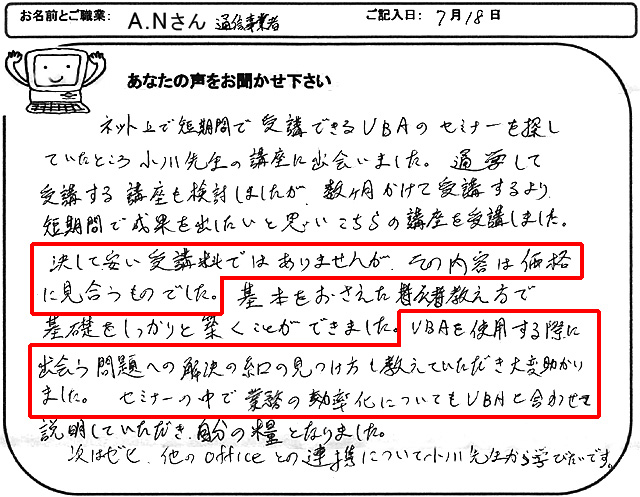 お名前とご職業: A.Nさん 通信事業者 ご記入日: 7月18日
あなたの声をお聞かせ下さい
ネット上で短期間で受講できるVBAのセミナーを探し
ていたところ小川先生の講座に出会いました。通学して
受講する講座も検討しましたが、数ヶ月かけて受講するより、
短期間で成果を出したいと思いこちらの講座を受講しました。
決して安い受講料ではありませんが、その内容は価格
に見合うものでした。基本をおさえた教え方で
基礎をしっかりと築くことができました。VBAを使用する際に
出会う問題への解決の糸口の見つけ方も教えていただき大変助かり
ました。セミナーの中で業務の効率化についてもVBAと合わせて
説明していただき、自分の糧となりました。
次はぜひ、他のOfficeとの連携について小川先生から学びたいです。